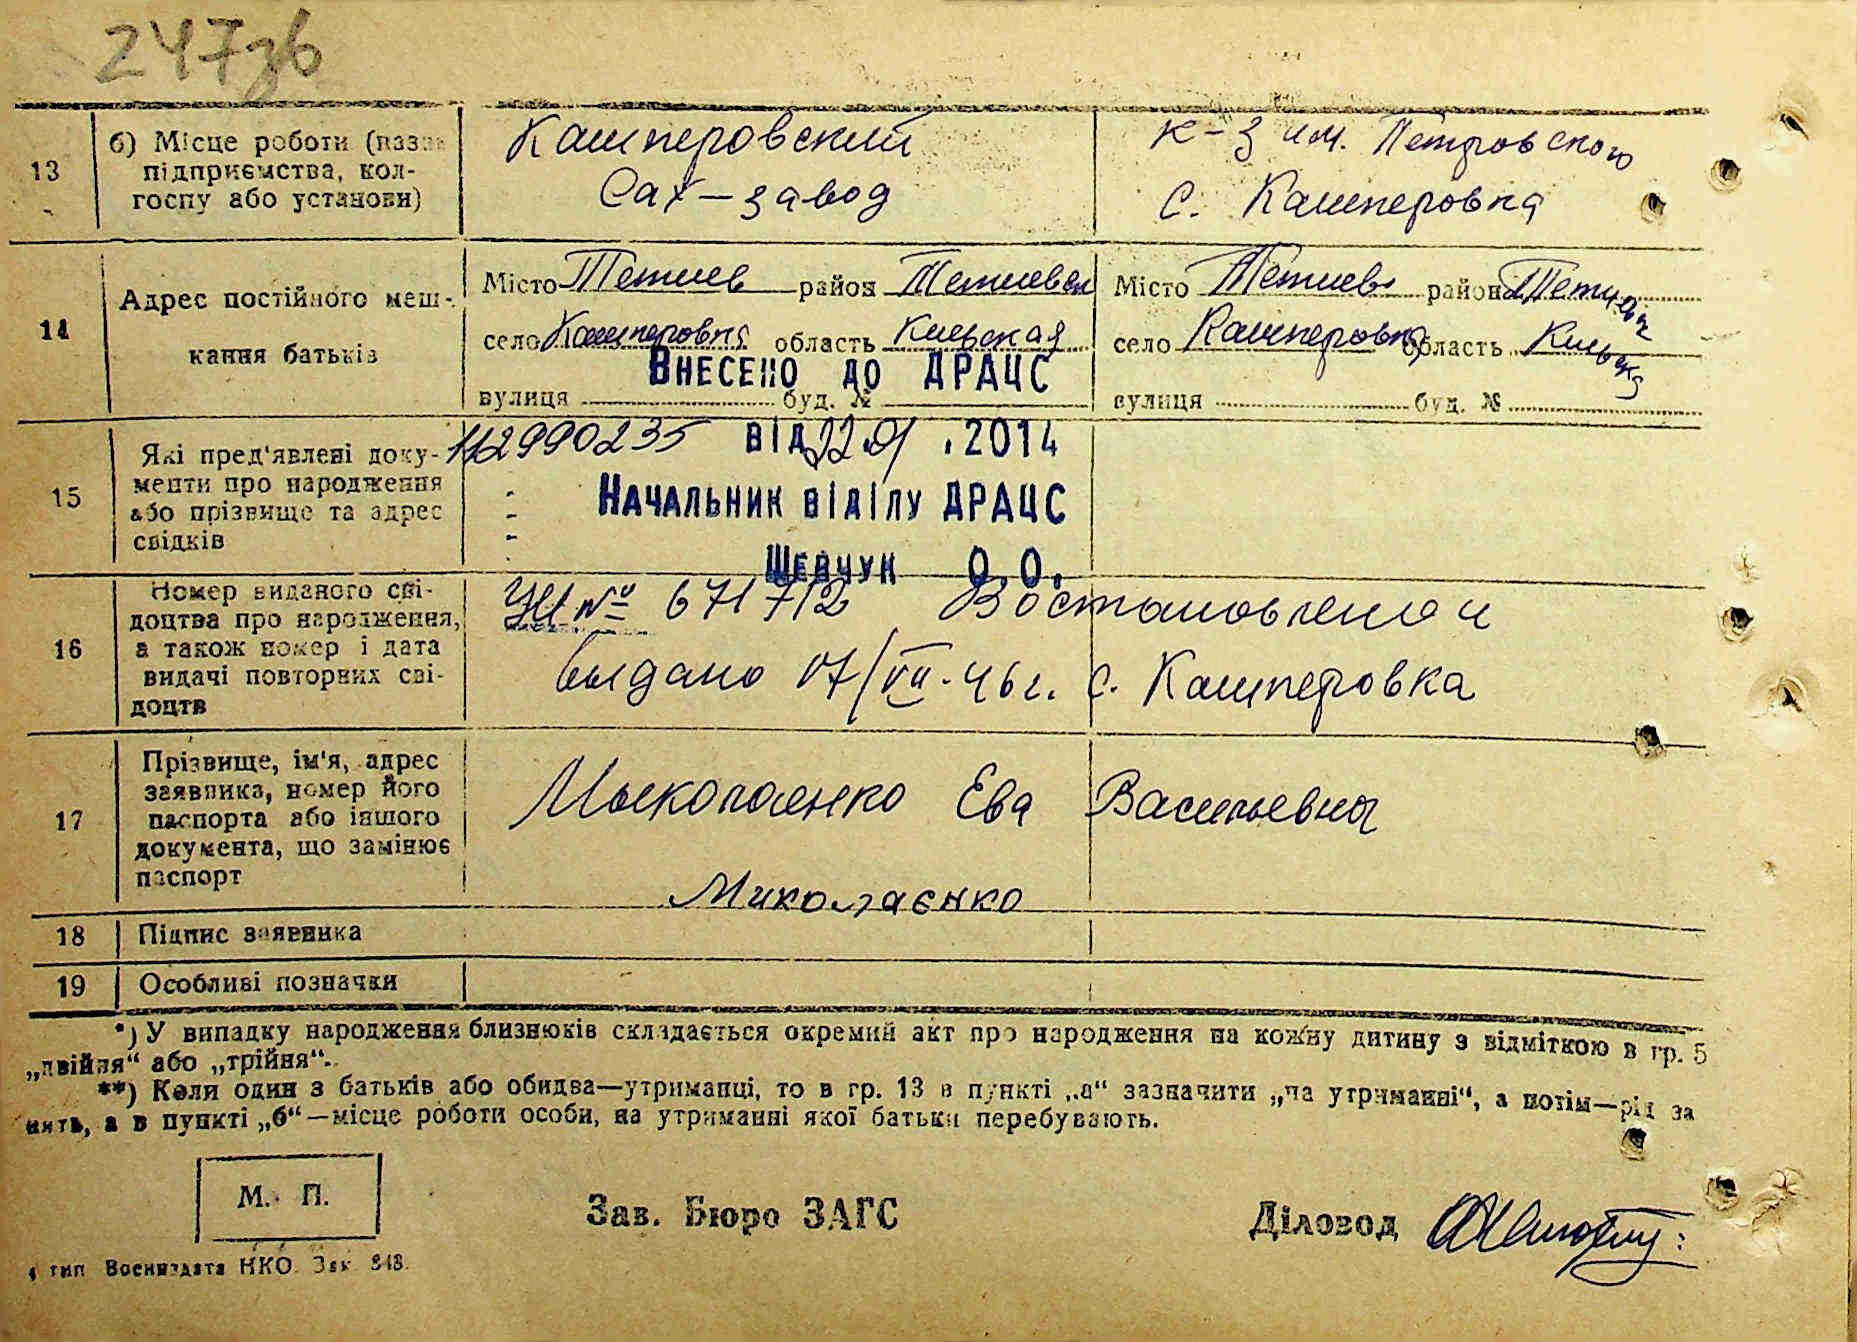 247зв
13
б) Місце роботи (назва
підприємства, кол-
госпу або установи)
Кашперовский
Сах-завод
к-з им. Петровского
с. Кашперовка
14
Адрес постійного меш-
кання батьків
Місто Тетиев район Тетиевск
село Кашперовка область Киевская
вулиця буд. №
Місто Тетиев район Тетиевс
село Кашперовка область Киевска
вулиця буд. №
Внесено до ДРАЦС
15
Які пред'явлені доку-
менти про народження
або прізвище та адрес
свідків
112990235 від 22.01.2014
Начальник відділу ДРАЦС
Шевчук О.О.
16
Номер виданого сві-
доцтва про народження,
а також номер і дата
видачі повторних сві-
доцтв
№ 671712 Востановлено и
выдано 17/VII-46 г. с. Кашперовка
17
Прізвище, ім'я, адрес
заявника, номер його
паспорта або іншого
документа, що замінює
паспорт
Мыколаенко Ева Васильевна
Миколаєнко
18 Підпис заявника
19 Особливі позначки
*) У випадку народження близнюків складається окремий акт про народження на кожну дитину з відміткою в гр. 5
„двійня“ або „трійня“.
**) Коли один з батьків або обидва—утриманці, то в гр. 13 в пункті „а“ зазначити „на утриманні“, а потім—рід за
нять, а в пункті „б“—місце роботи особи, на утриманні якої батьки перебувають.
М. П.
Зав. Бюро ЗАГС
Діловод
4 тип Воениздата НКО Зак 348.